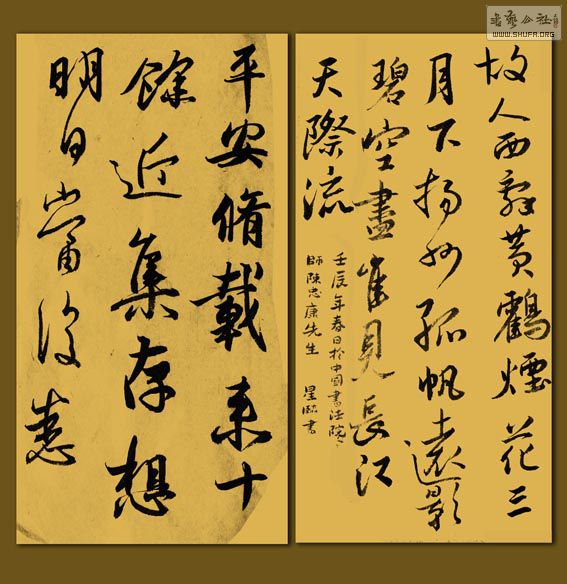 故人西辭黃鶴煙花三
月下揚州孤帆遠影
碧空盡唯見長江
天際流
壬辰年春日於中國書法院
師陳忠康先生 星 書
平安脩載来十
餘近集存想
明日當復悉
書藝公社
WWW.SHUFA.ORG